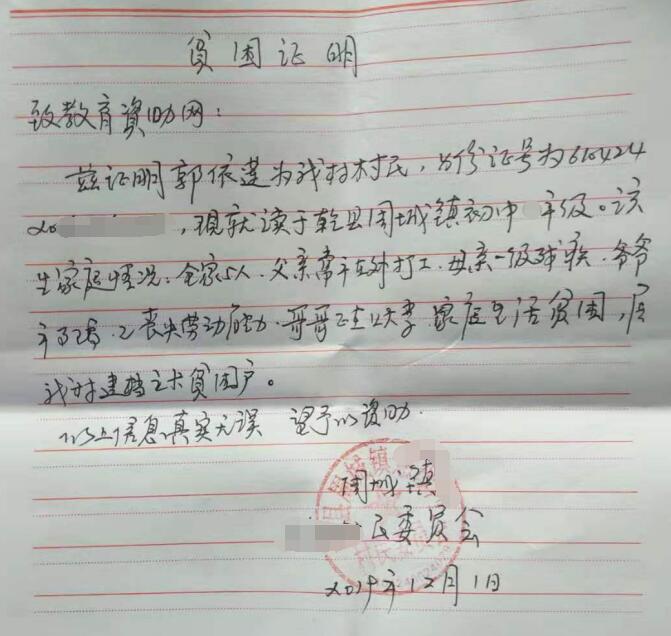 贫困证明
致教育資助网：
兹证明郭依莲为我村村民，身份证号为610424
20，现就读于乾县周城镇初中年级。该
生家庭情况：全家5人．父亲常年在外打工．母亲一级残疾．爷爷
年高，已丧失劳动能力．哥哥正上大学．家庭生活贫困，属
我村建档立卡贫困户。
以上信息真实无误 望予以資助．
周城镇
民委员会
2019年12月1日